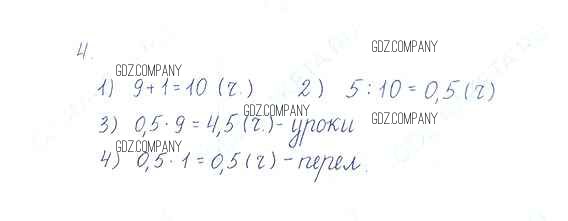 4.
GDZ.COMPANY
GDZ.COMPANY
1) 9+1=10 (г.) 2) 5:10=0,5 (г)
GDZ.COMPANY
3) 0,5·9=4,5 (г.) - уроки
GDZ.COMPANY
GDZ.COMPANY
4) 0,5·1=0,5 (г) - перел.